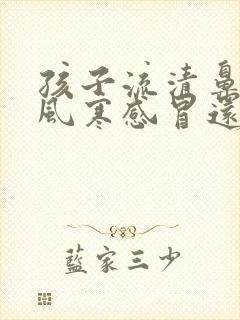 孩子流清鼻
風寒感冒還
藍家三少